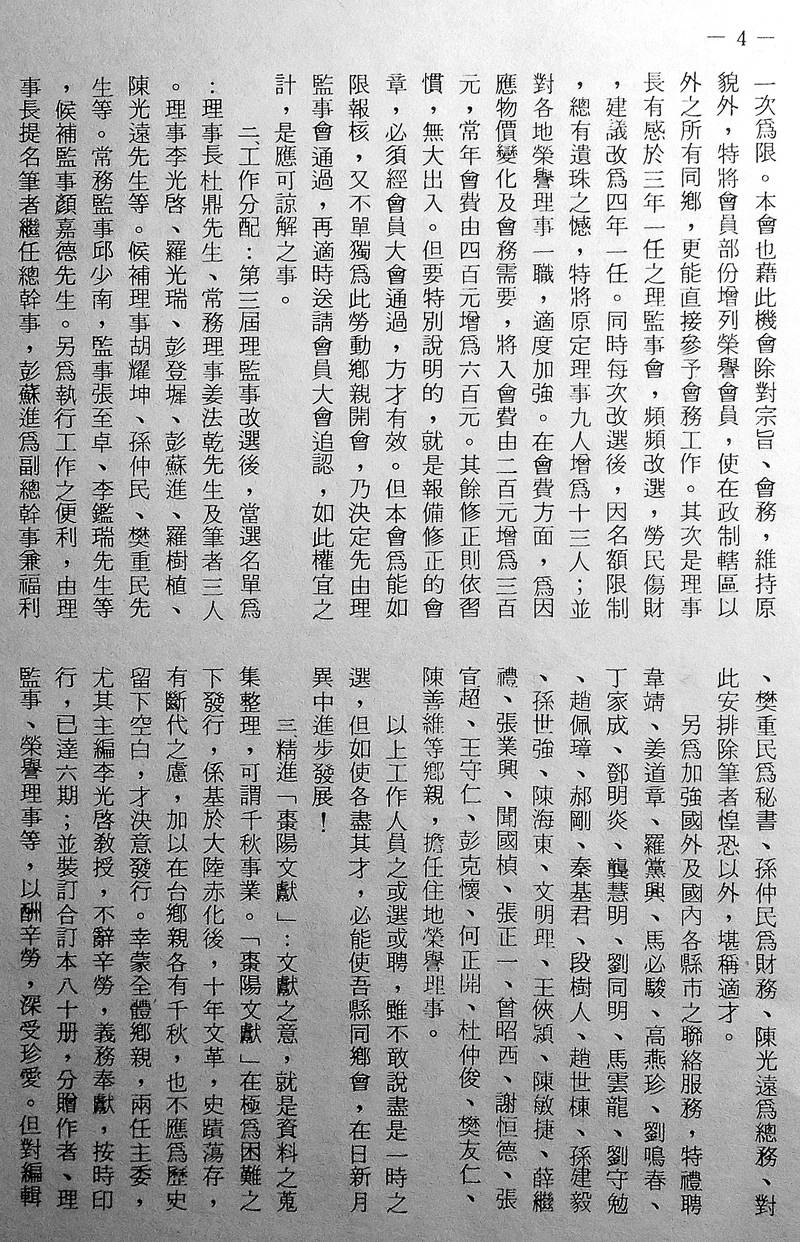 — 4 —
一次為限。本會也藉此機會除對宗旨、會務，維持原
貌外，特將會員部份增列榮譽會員，使在政制轄區以
外之所有同鄉，更能直接參予會務工作。其次是理事
長有感於三年一任之理監事會，頻頻改選，勞民傷財
，建議改為四年一任。同時每次改選後，因名額限制
，總有遺珠之憾，特將原定理事九人增為十三人；並
對各地榮譽理事一職，適度加強。在會費方面，為因
應物價變化及會務需要，將入會費由二百元增為三百
元，常年會費由四百元增為六百元。其餘修正則依習
慣，無大出入。但要特別說明的，就是報備修正的會
章，必須經會員大會通過，方才有效。但本會為能如
限報核，又不單獨為此勞動鄉親開會，乃決定先由理
監事會通過，再適時送請會員大會追認，如此權宜之
計，是應可諒解之事。
二、工作分配：第三屆理監事改選後，當選名單為
：理事長杜鼎先生、常務理事姜法乾先生及筆者三人
。理事李光啓、羅光瑞、彭登墀、彭蘇進、羅樹植、
陳光遠先生等。候補理事胡耀坤、孫仲民、樊重民先
生等。常務監事邱少南，監事張至卓、李鑑瑞先生等
，候補監事顏嘉德先生。另為執行工作之便利，由理
事長提名筆者繼任總幹事，彭蘇進為副總幹事兼福利
、樊重民為秘書、孫仲民為財務、陳光遠為總務、對
此安排除筆者惶恐以外，堪稱適才。
另為加強國外及國內各縣市之聯絡服務，特禮聘
韋靖、姜道章、羅黨興、馬必駿、高燕珍、劉鳴春、
丁家成、鄧明炎、龔慧明、劉同明、馬雲龍、劉守勉
、趙佩璋、郝剛、秦基君、段樹人、趙世棟、孫建毅
、孫世強、陳海東、文明理、王俠潁、陳敏捷、薛繼
禮、張業興、聞國楨、張正一、曾昭西、謝恒德、張
宜超、王守仁、彭克懷、何正開、杜仲俊、樊友仁、
陳善維等鄉親，擔任住地榮譽理事。
以上工作人員之或選或聘，雖不敢說盡是一時之
選，但如使各盡其才，必能使吾縣同鄉會，在日新月
異中進步發展！
三、精進「棗陽文獻」：文獻之意，就是資料之蒐
集整理，可謂千秋事業。「棗陽文獻」在極為困難之
下發行，係基於大陸赤化後，十年文革，史蹟蕩存，
有斷代之慮，加以在台鄉親各有千秋，也不應為歷史
留下空白，才決意發行。幸蒙全體鄉親，兩任主委，
尤其主編李光啓教授，不辭辛勞，義務奉獻，按時印
行，已達六期；並裝訂合訂本八十册，分贈作者、理
監事、榮譽理事等，以酬辛勞，深受珍愛。但對編輯